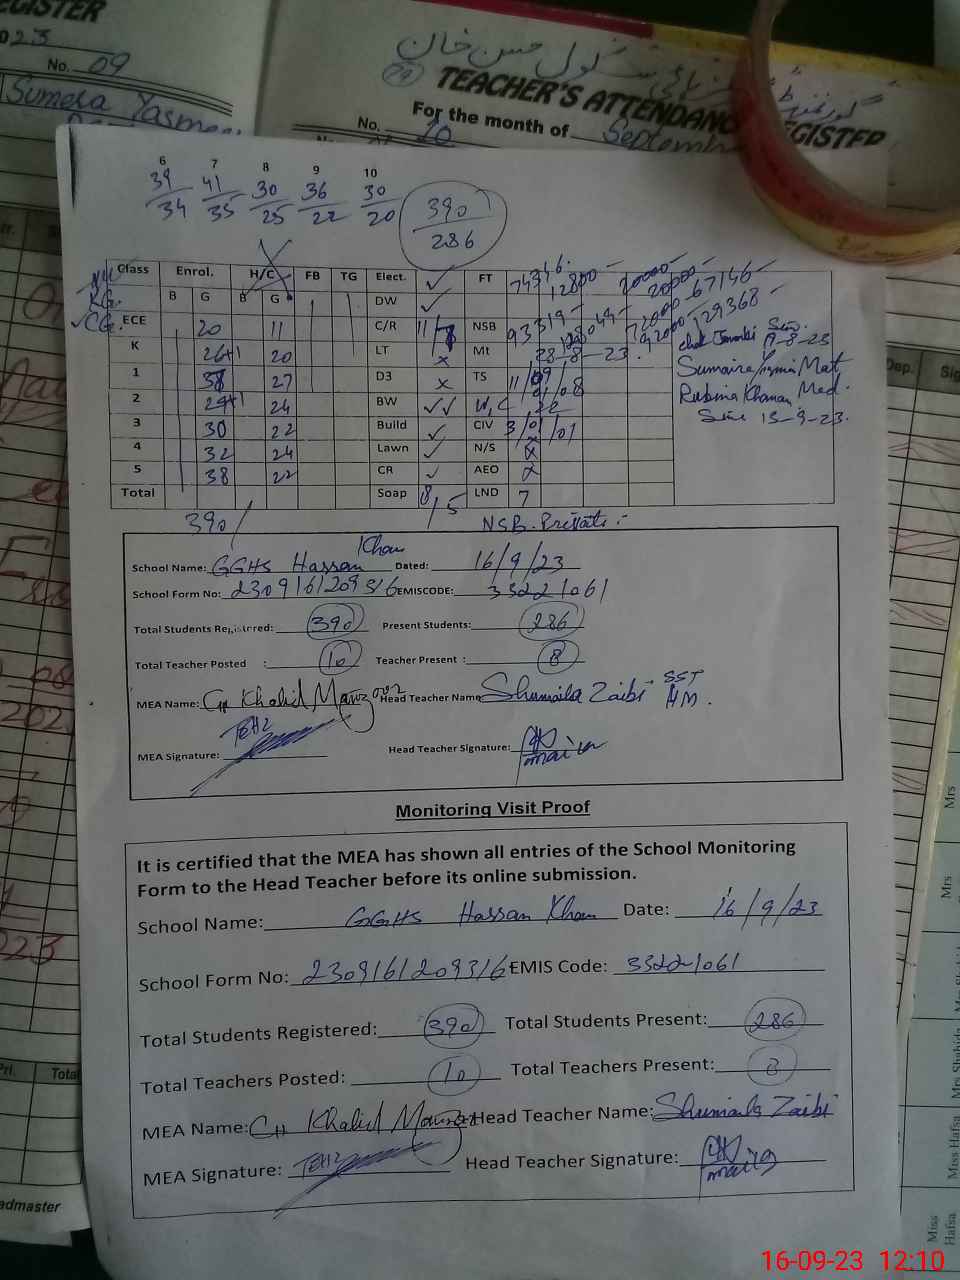 EGISTER
023
No. 09
Sumera Yasmeen
TEACHER'S ATTENDANCE REGISTER
For the month of September
No. 10
6 7 8 9 10
39/34 41/35 30/25 36/22 30/20 390/286
Class Enrol. H/C FB TG Elect. ✓ FT 74346- 12800- 20000- 20000- 67146-
B G B G DW ✓
ECE 20 11 C/R 11 NSB 93319- 72000- 92000- 129368-
K 26+1 20 LT x Mt 28-8-23.
1 38 27 D3 x TS 11/09
2 29+1 24 BW ✓✓ W.C 22
3 30 22 Build ✓ CIV 3/01/01
4 32 24 Lawn ✓ N/S x
5 38 22 CR ✓ AEO x
Total Soap 8/5 LND 7
Rubina Khanam Med.
Since 13-9-23.
390/
NSB. Private:-
School Name: GGHS Hassan Khan Dated: 16/9/23
School Form No: 2309161209316 EMISCODE: 33221061
Total Students Registered: 390 Present Students: 286
Total Teacher Posted : 10 Teacher Present : 8
MEA Name: CH Khalid Head Teacher Name Shumaila Zaibi SST HM.
MEA Signature: Head Teacher Signature:
Monitoring Visit Proof
It is certified that the MEA has shown all entries of the School Monitoring
Form to the Head Teacher before its online submission.
School Name: GGHS Hassan Khan Date: 16/9/23
School Form No: 2309161209316 EMIS Code: 33221061
Total Students Registered: 390 Total Students Present: 286
Total Teachers Posted: 10 Total Teachers Present: 8
MEA Name: CH Khalid Head Teacher Name: Shumaila Zaibi
MEA Signature: Head Teacher Signature:
Dep. Sig
Pri. Total
admaster
Mrs
Mrs
Mrs Shahida
Miss Hafsa
Miss Hafsa
16-09-23 12:10